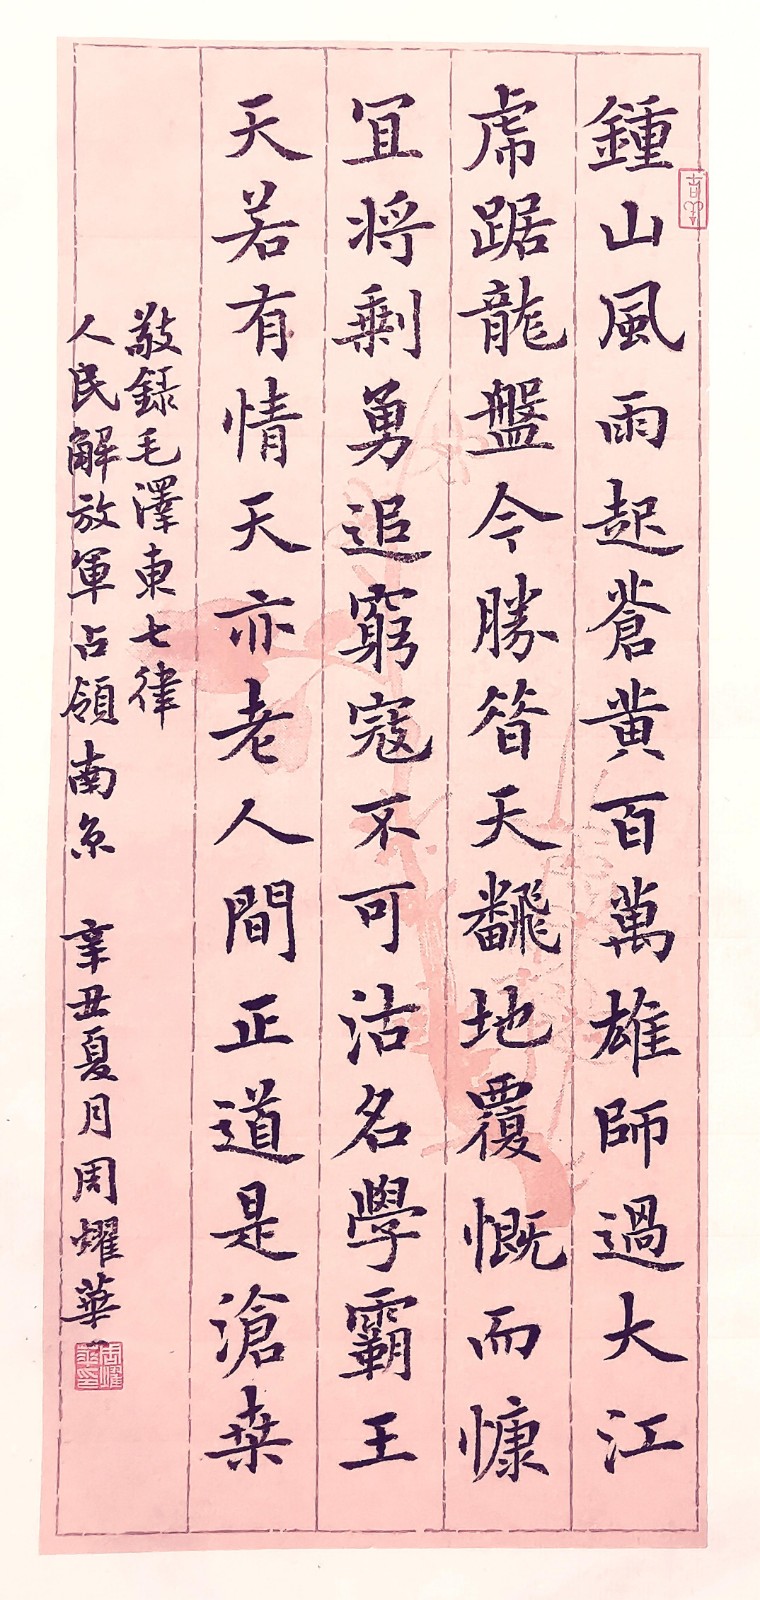 鍾山風雨起蒼黄百萬雄師過大江
虎踞龍盤今勝昔天翻地覆慨而慷
宜将剩勇追窮寇不可沽名學霸王
天若有情天亦老人間正道是滄桑
敬録毛澤東七律
人民解放軍占領南京 辛丑夏月周燿華
周燿華印